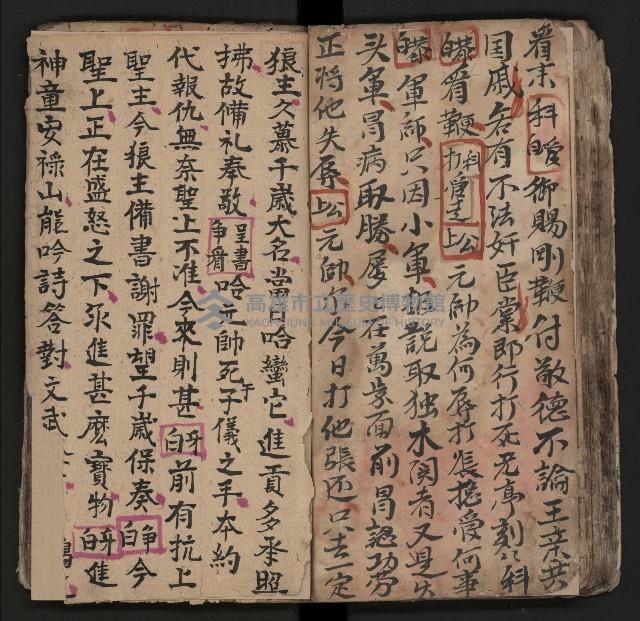 看末科曖御賜剛鞭付敬德不論王亲共
国戚若有不法奸臣党即行打死老亭刻科
看鞭科打介走上公元帥為何辱打張揔愛何事
軍師只因小軍報說取独木関者又是
头軍冒病取勝屡在萬步面前冒認功劳
正將他失辱上公元帥你今日打他張还只去一定
狼主久慕千歲大名當日哈蠻它進貢多承照
拂故備礼奉敬呈書爭看哈元帥死于子儀之手本約
代報仇無奈聖上不准今來則甚白牙前有抗上
聖主今狼主備書謝罪望千歲保奏白爭今
聖上正在盛怒之下求進甚麼寶物白牙進
神童安祿山能吟詩答對文武
高雄市立歷史博物館
KAOHSIUNG MUSEUM OF HISTORY